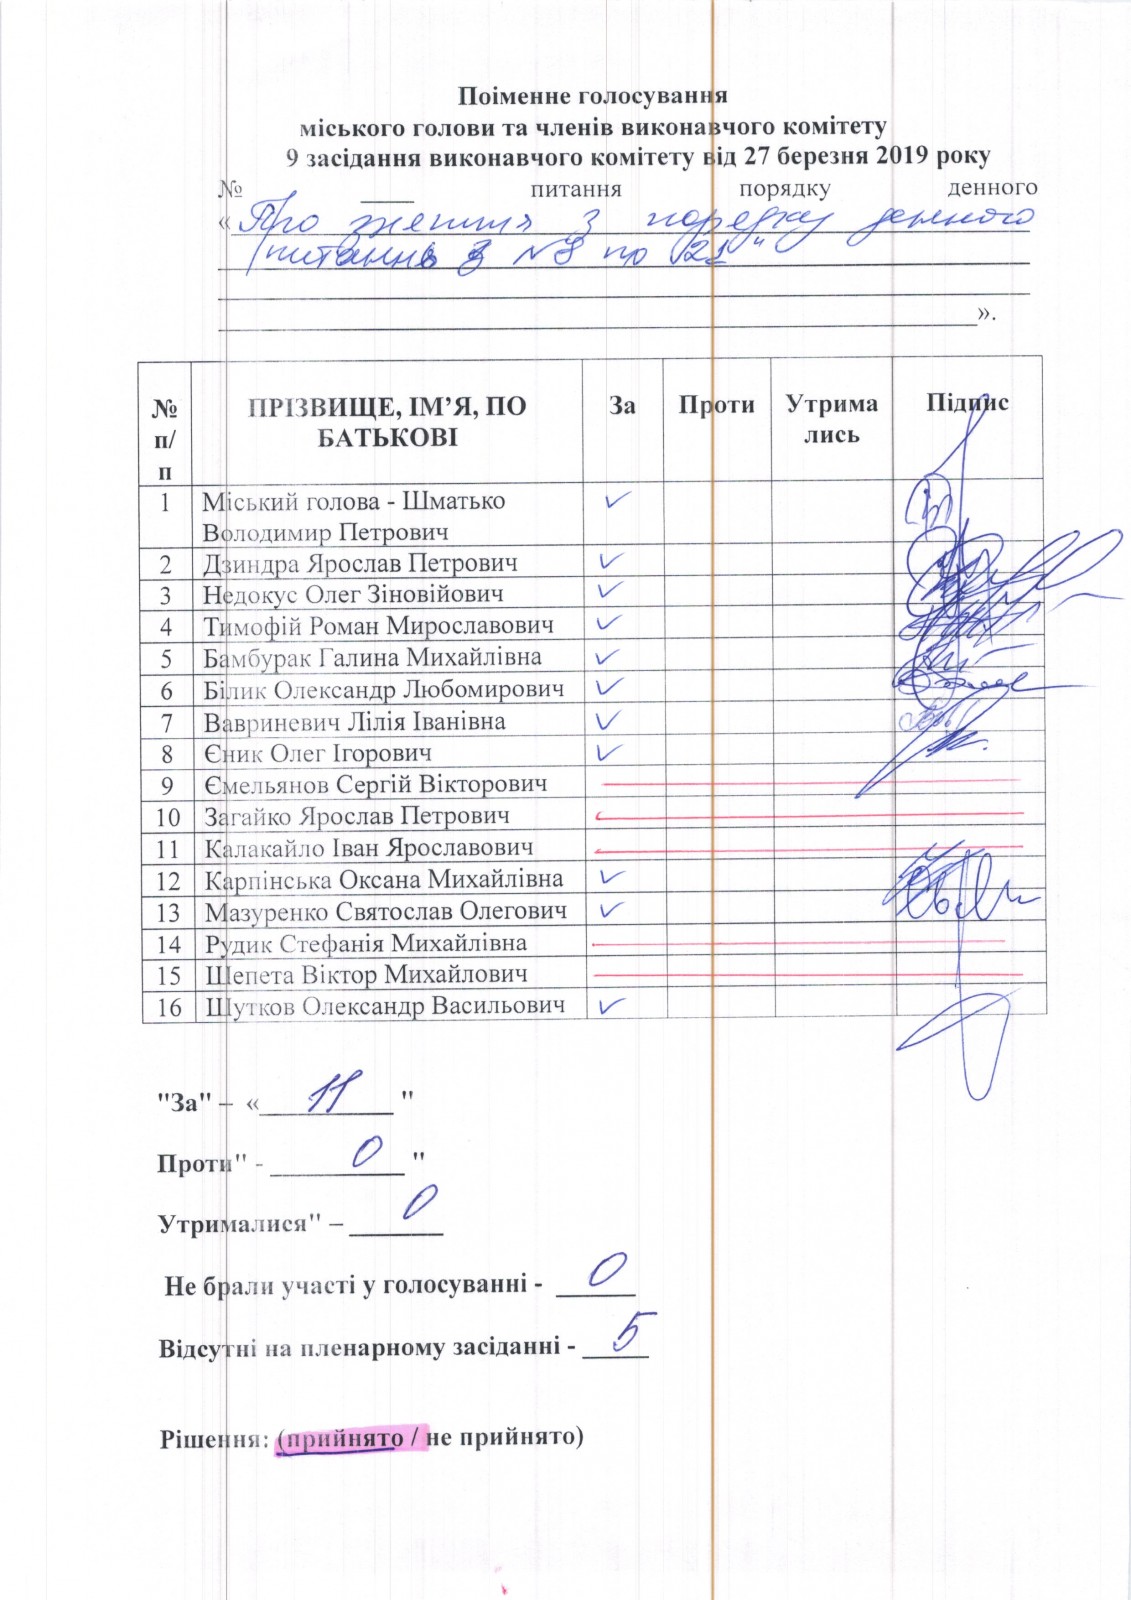 Поіменне голосування
міського голови та членів виконавчого комітету
9 засідання виконавчого комітету від 27 березня 2019 року
№ ____ питання порядку денного
«Про з порядку денного
питання з №8 по 21"
».
№ п/п ПРІЗВИЩЕ, ІМ’Я, ПО БАТЬКОВІ За Проти Утрима лись Підпис
1 Міський голова - Шматько
Володимир Петрович ✓
2 Дзиндра Ярослав Петрович ✓
3 Недокус Олег Зіновійович ✓
4 Тимофій Роман Мирославович ✓
5 Бамбурак Галина Михайлівна ✓
6 Білик Олександр Любомирович ✓
7 Вавриневич Лілія Іванівна ✓
8 Єник Олег Ігорович ✓
9 Ємельянов Сергій Вікторович
10 Загайко Ярослав Петрович
11 Калакайло Іван Ярославович
12 Карпінська Оксана Михайлівна ✓
13 Мазуренко Святослав Олегович ✓
14 Рудик Стефанія Михайлівна
15 Шепета Віктор Михайлович
16 Шутков Олександр Васильович ✓
"За" – « 11 "
Проти" - 0 "
Утрималися" – 0
Не брали участі у голосуванні - 0
Відсутні на пленарному засіданні - 5
Рішення: (прийнято / не прийнято)